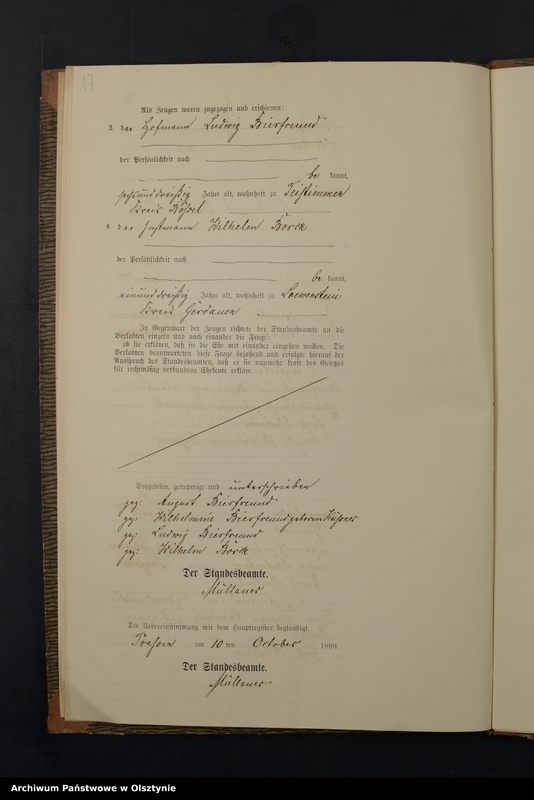 17
Als Zeugen waren zugezogen und erschienen:
3. der Hofmann Ludwig Bierfreund
der Persönlichkeit nach
be kannt,
sechsunddreißig Jahre alt, wohnhaft zu Teistimmen
Kreis Rößel
4. der Instmann Wilhelm Borck
der Persönlichkeit nach
be kannt,
einunddreißig Jahre alt, wohnhaft zu Loewenstein
Kreis Gerdauen
In Gegenwart der Zeugen richtete der Standesbeamte an die
Verlobten einzeln und nach einander die Frage:
ob sie erklären, daß sie die Ehe mit einander eingehen wollen. Die
Verlobten beantworteten diese Frage bejahend und erfolgte hierauf der
Ausspruch des Standesbeamten, daß er sie nunmehr kraft des Gesetzes
für rechtmäßig verbundene Eheleute erkläre.
Vorgelesen, genehmigt und unterschrieben
gez: August Bierfreund
gez: Wilhelmine Bierfreund geborene
gez: Ludwig Bierfreund
gez: Wilhelm Borck
Der Standesbeamte.
Müllauer
Die Uebereinstimmung mit dem Hauptregister beglaubigt.
am 10 ten October 1880
Der Standesbeamte.
Müllauer
Archiwum Państwowe w Olsztynie